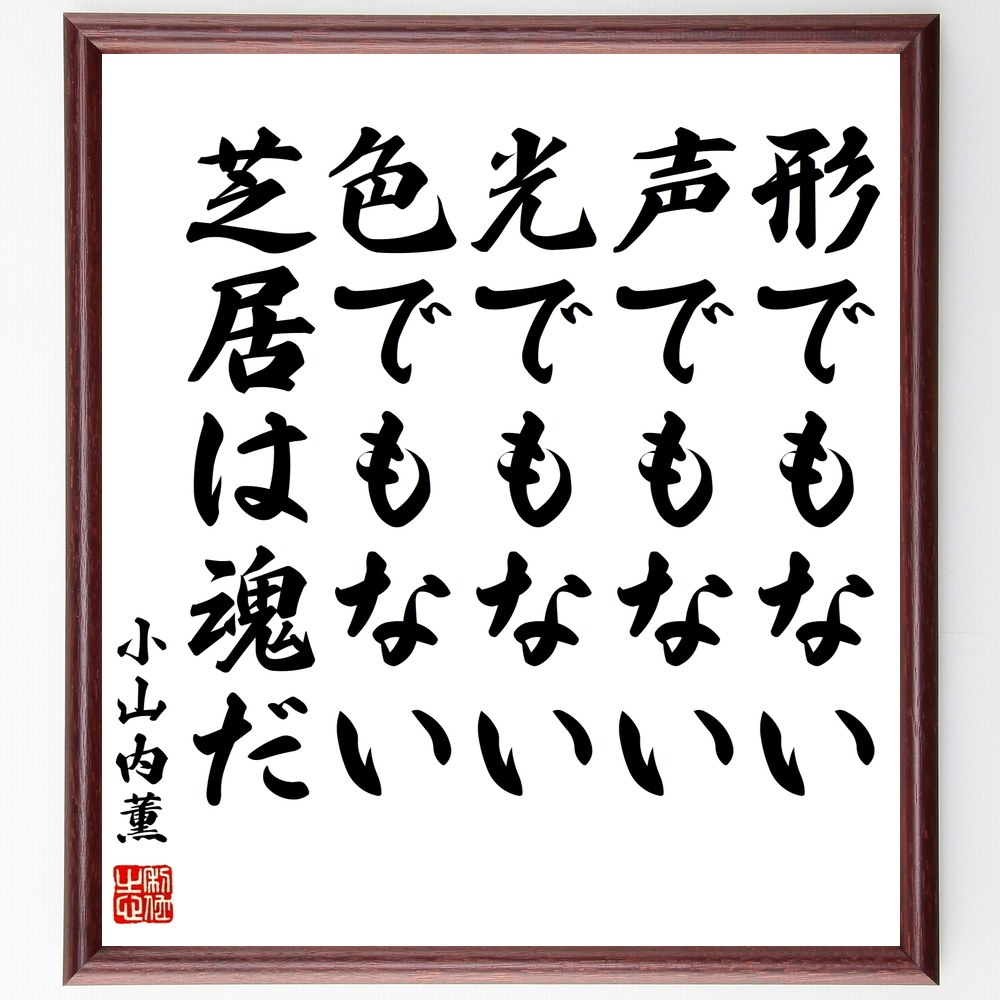 形でもない
声でもない
光でもない
色でもない
芝居は魂だ
小山内薫